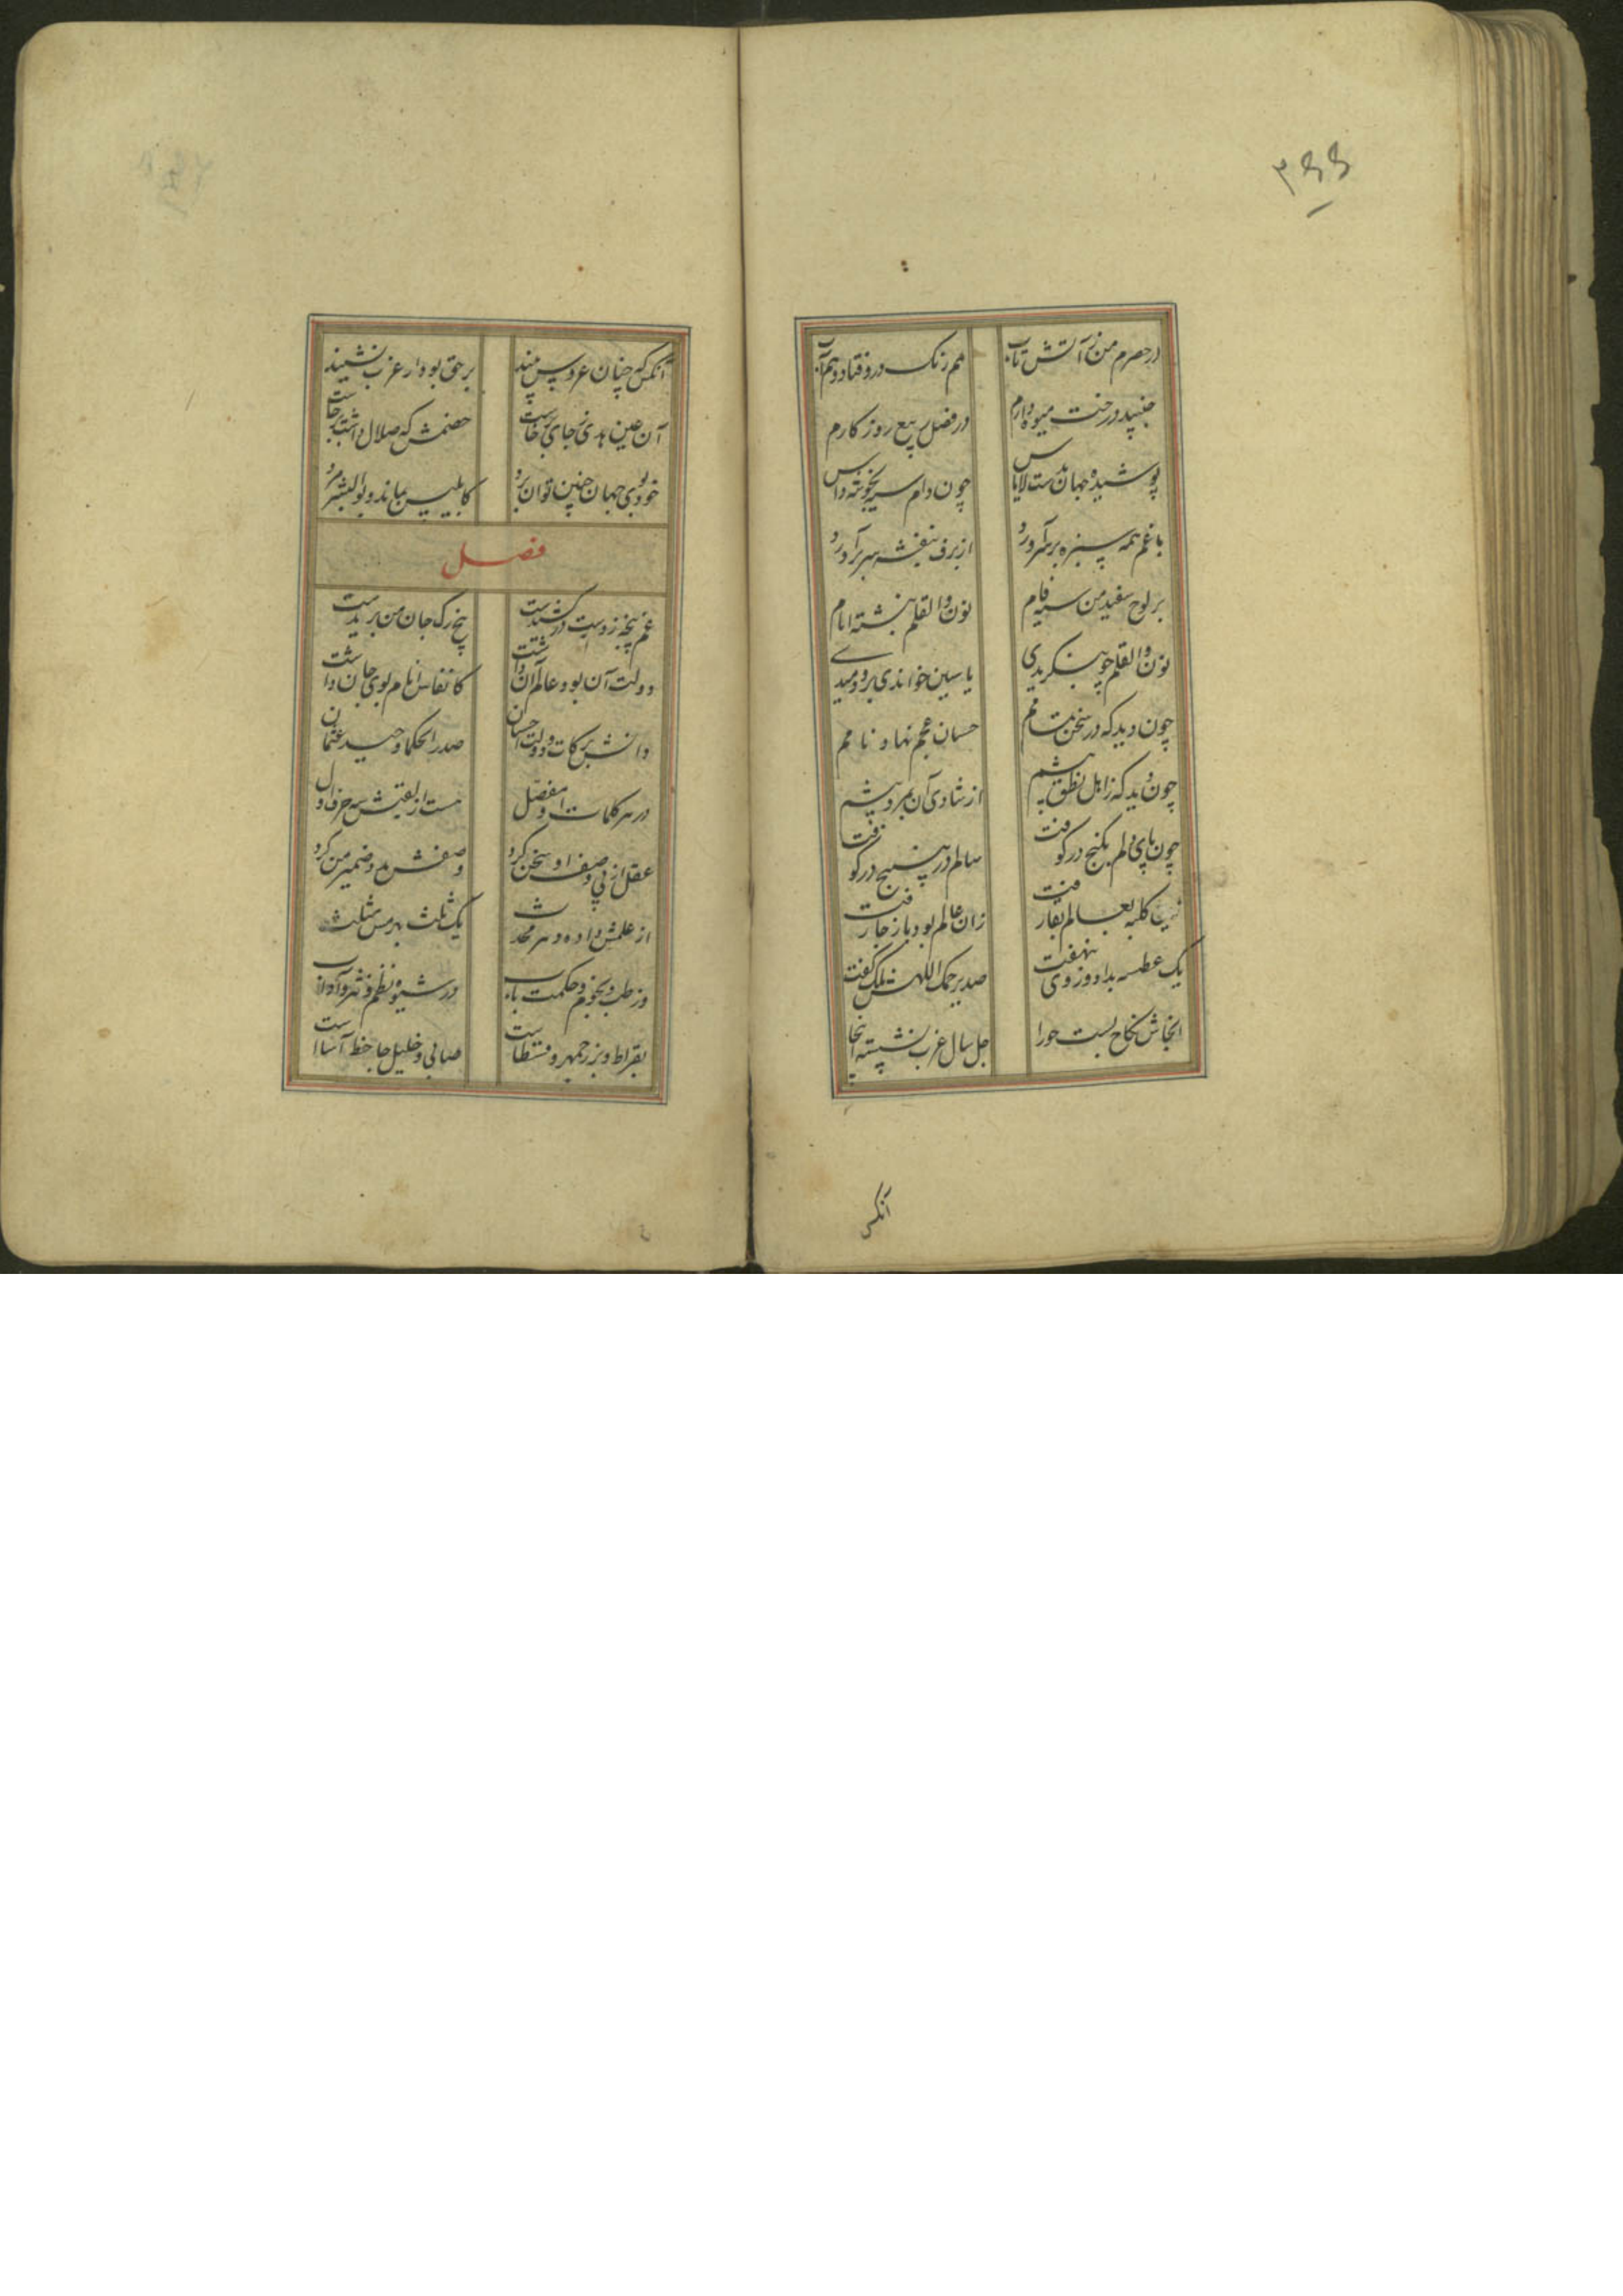 ۳۶۶
در حصرم من ز آتش تاب هم رنگ درو فتاد و هم آب
جنبید درخت میوه دارم در فصل ربیع روزکارم
پوشیده جهان بدست لاباس چون دام سیه
با غم همه سبزه برسر آورد از برف بنفشه سر برآورد
بر لوح سفید من سیه فام نون والقلم نبشته ایام
نون والقلم چو بنکریدی یاسین خواندی برو دمیدی
چون دید که در سخن تمامم حسان عجم نهاد نامم
چون دید که زاهل نطق بیشم از شادی آن بمرد پیشم
چون پای دلم بکنج در کوفت سالم در بیست و پنج در کوفت
کلبه بعالم بقا رفت زان عالم بود باز جا رفت
یک عطسه بداد و روی بنهفت صد یرحمک اللهش ملک کفت
آنجاش نکاح بست حورا چل سال عزب نشسته اینجا
آنکس
آنکس که چنان عروس بیند بر حق بود ار عزب نشیند
آن عین هدی ز جای برخاست خصمش که ضلال داشت برجاست
خود بی جهان چنین توان برد کابلیس بماند و بوالبشر مرد
فصل
غم پنجه ز دست در کشیدست پنج رک جان من بریدست
دولت آن بود و عالم آن داشت کانفاس انام بوی جان داشت
دانش برکات و دولت احسان صدر الحکما وحید عثمان
در هر کلمات او مفصل هست از لقبش سه حرف اول
عقل از پی وصف او سخن کرد وصفش مدد ضمیر من کرد
از علمش داده دهر محدث یک ثلث بهرمس مثلث
وز طب و نجوم و حکمت باب در شیوه نظم و نثر و آداب
بقراط و بزرجمهر و قسطاست صابی و خلیل جاحظ آساست